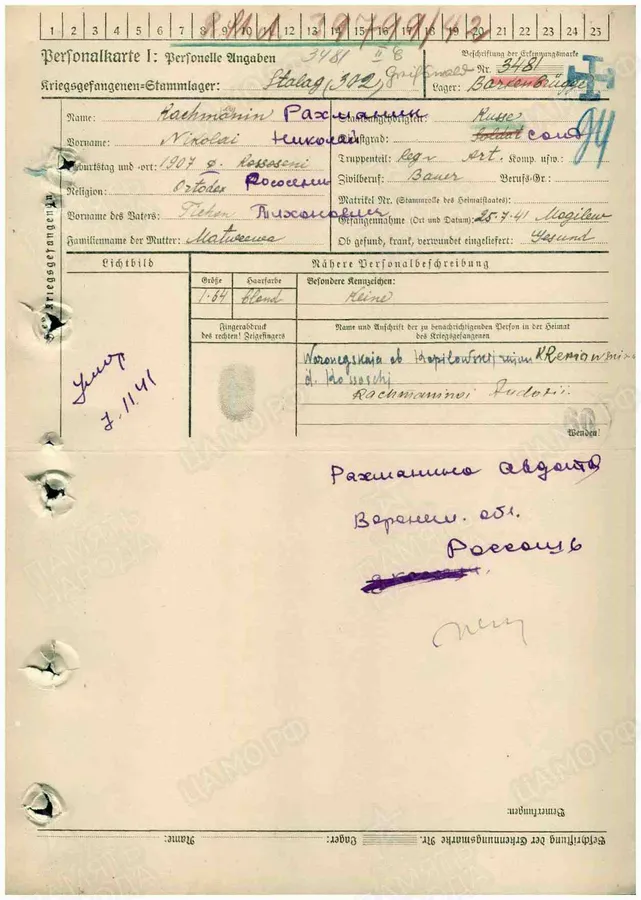 1 2 3 4 5 6 7 8 9 10 11 12 13 14 15 16 17 18 19 20 21 22 23 24 25
Personalkarte I: Personelle Angaben 3481 II C
Beschriftung der Erkennungsmarke
Nr. 3481
Kriegsgefangenen-Stammlager: Stalag 302 Greifswald
Lager: Bärenbrügge
Name: Rachmanin Рахманин
Staatsangehörigkeit: Russe
Vorname: Nikolai Николай
Dienstgrad: Soldat солд
94
Geburtstag und -ort: 1907 Rossoseni Рососени
Truppenteil: Reg. Art. Komp. usw.:
Religion: Ortodox
Zivilberuf: Bauer Berufs-Gr.:
Matrikel Nr. (Stammrolle des Heimatstaates):
Vorname des Vaters: Tichon Тихонович
Gefangennahme (Ort und Datum): 25.7.41 Mogilew
Familienname der Mutter: Matweewa
Ob gesund, krank, verwundet eingeliefert: Gesund
Des Kriegsgefangenen
Lichtbild
Nähere Personalbeschreibung
Größe Haarfarbe Besondere Kennzeichen:
1.64 blond Keine
Fingerabdruck
des rechten! Zeigefingers
Name und Anschrift der zu benachrichtigenden Person in der Heimat
des Kriegsgefangenen
d. Rossoschj
Rachmaninoi
Wenden!
умер
7.11.41
Рахманина Авдотья
Воронеж. обл.
Россошь
Bemerkungen:
Beschriftung der Erkennungsmarke Nr. Lager: Name:
ЦАМО РФ
ПАМЯТЬ НАРОДА